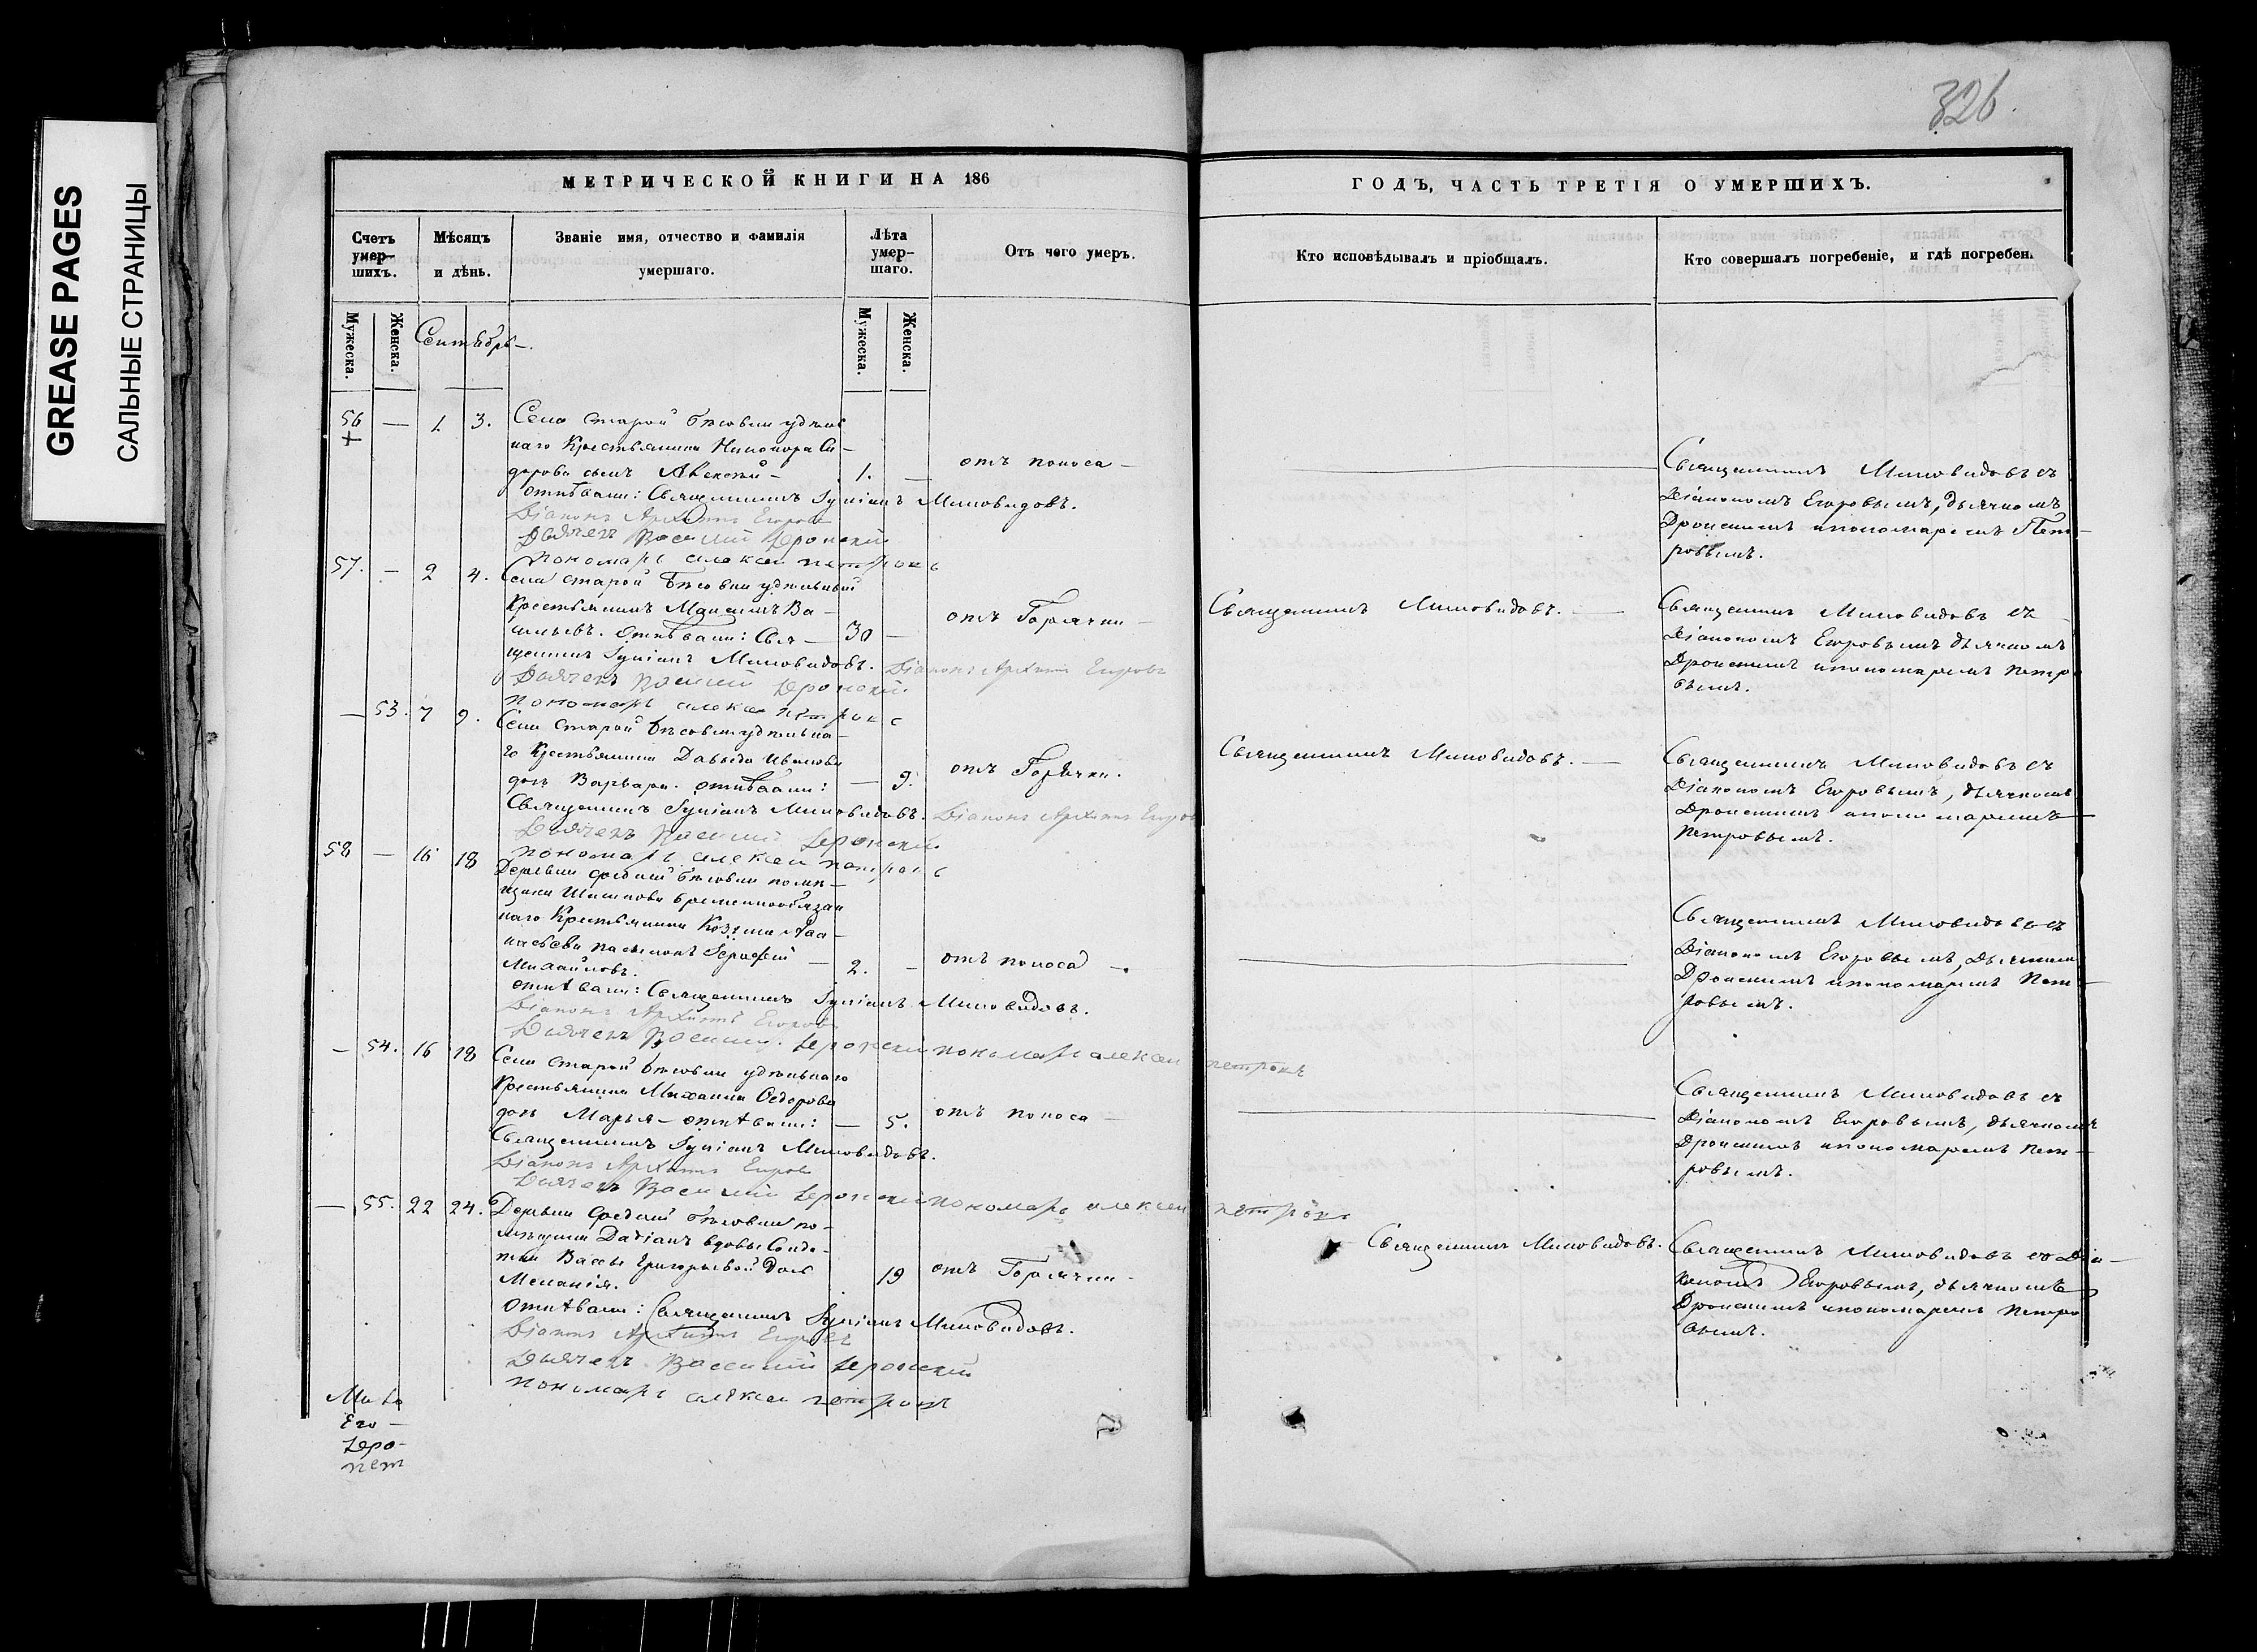 326
GREASE PAGES
САЛЬНЫЕ СТРАНИЦЫ
МЕТРИЧЕСКОЙ КНИГИ НА 186
ГОДЪ, ЧАСТЬ ТРЕТІЯ О УМЕРШИХЪ.
Счетъ умер-шихъ.
Мѣсяцъ и дѣнь.
Званіе имя, отчество и фамилія умершаго.
Лѣта умер-шаго.
Отъ чего умеръ.
Кто исповѣдывалъ и пріобщалъ.
Кто совершалъ погребеніе, и гдѣ погребен
Мужеска.
Женска.
Сентябрь
Мужеска.
Женска.
56 — 1. 3. Села Старой удѣль
наго Крестьянина Никонора Си
дорова сынъ Алексѣй — 1. — отъ поноса —
отпѣвали: Священникъ Іуліанъ Миловидовъ.
Діаконъ Архипъ Егоровъ
Дьячекъ Василий Дронский
пономарь алексей петровъ
Священникъ Миловидовъ съ
Діакономъ Егоровымъ, дьячкомъ
Дронскимъ и пономаремъ Пет-
ровымъ.
57. — 2 4. Села Старой удѣльный
Крестьянинъ Максимъ Ва-
сильевъ. отпѣвали: Свя- 30 — отъ Горячки —
щенникъ Іуліанъ Миловидовъ. Діаконъ Архипъ Егоровъ
Дьячекъ Василий Дронский
пономарь алексей петровъ
Священникъ Миловидовъ. —
Священникъ Миловидовъ съ
Діакономъ Егоровымъ дьячкомъ
Дронскимъ и пономаремъ Петро
вымъ.
— 53. 7 9. Села Старой удѣльна-
го Крестьянина Давыда Иванова
дочь Варвара. отпѣвали: — 9. отъ Горячки.
Священникъ Іуліанъ Миловидовъ. Діаконъ Архипъ Егоров
Дьячекъ Василий Дронский
пономарь алексей петровъ
Священникъ Миловидовъ. —
Священникъ Миловидовъ съ
Діакономъ Егоровымъ, дьячкомъ
Дронскимъ и пономаремъ
Петровымъ.
58 — 16 18 Деревни Средней помѣ-
щика временнообязан
наго Крестьянина Козьмы Афа-
насьева пасынокъ
Михайловъ. — 2. — отъ поноса —
отпѣвали: Священникъ Іуліанъ Миловидовъ.
Діаконъ Архипъ Егоровъ
Дьячекъ Василий Дронский пономарь алексей петровъ
Священникъ Миловидовъ съ
Діакономъ Егоровымъ, Дьячкомъ
Дронскимъ и пономаремъ Пет-
ровымъ.
— 54. 16 18 Села Старой удѣльнаго
Крестьянина Михаила Ѳедорова
дочь Марья — отпѣвали: — 5. отъ поноса —
Священникъ Іуліанъ Миловидовъ.
Діаконъ Архипъ Егоровъ
Дьячекъ Василий Дронский пономарь алексей петровъ
Священникъ Миловидовъ съ
Діакономъ Егоровымъ, дьячкомъ
Дронскимъ и пономаремъ Пет-
ровымъ.
— 55. 22 24. Деревни Средней по-
мѣщицы вдовы Солда-
тки Вассы Григорьевой дочь
Меланія. 19 отъ Горячки —
отпѣвали: Священникъ Іуліанъ Миловидовъ.
Діаконъ Архипъ Егоровъ
Дьячекъ Василий Дронский
пономарь алексей петровъ
Священникъ Миловидовъ.
Священникъ Миловидовъ съ Діа-
кономъ Егоровымъ, дьячкомъ
Дронскимъ и пономаремъ Петро
вымъ.
Мило
Его—
Дро-
пет